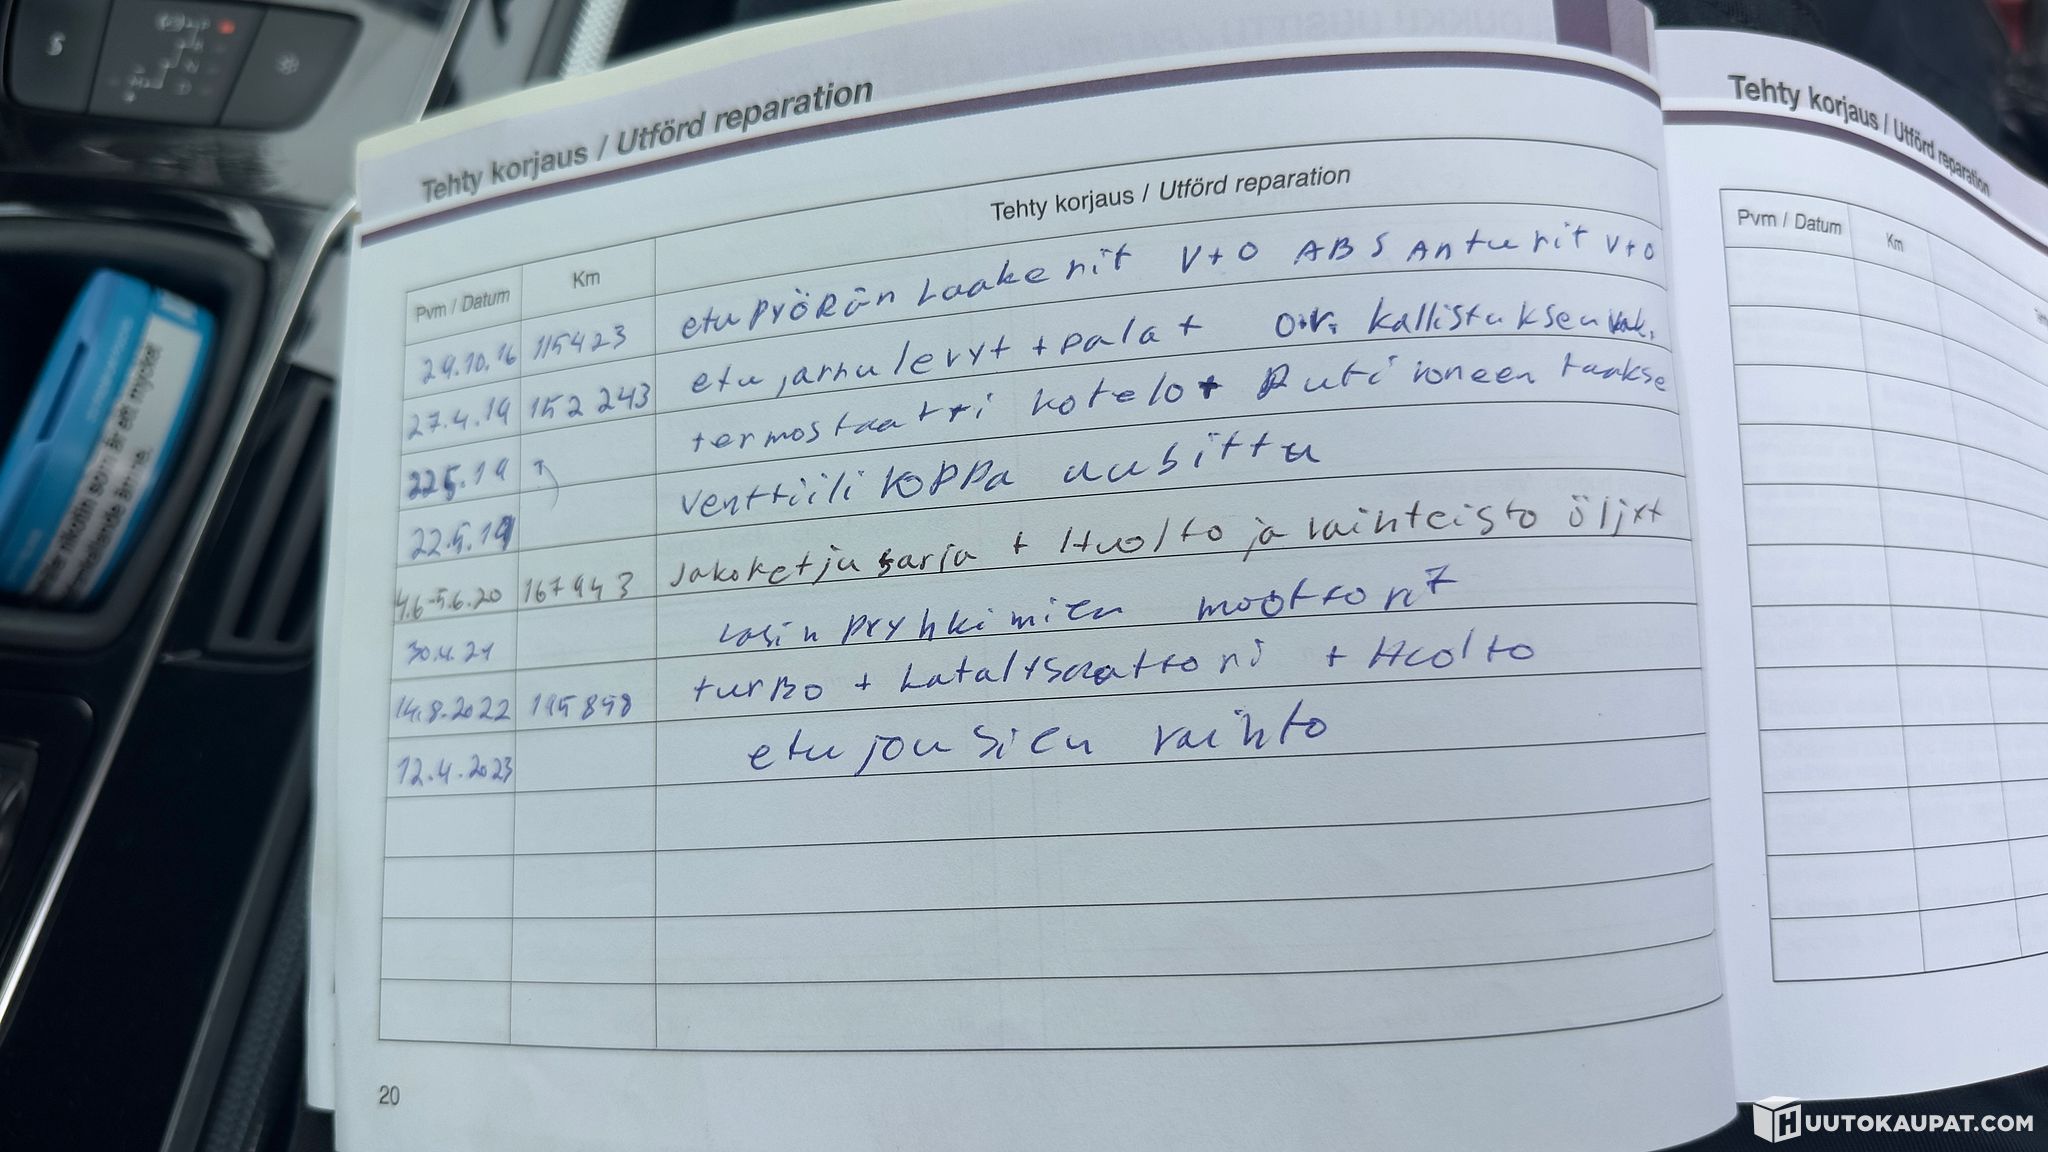 Tehty korjaus / Utförd reparation
Pvm / Datum Km Tehty korjaus / Utförd reparation
29.10.16 115423 etupyörän laakerit V+O ABS Anturit V+O
27.4.19 152 243 etu jarrulevyt + palat o.r. kallistuksen vak.
22.5.19 termostaatti kotelo + Putki koneen taakse
22.5.19 venttiilikoppa uusittu
4.6-5.6.20 167943 Jakoketju sarja + Huolto ja vaihteisto öljyt
30.4.21 Lasin pyyhkimien moottorit
14.8.2022 195898 turbo + katalysaattori + Huolto
12.4.2023 etu jousien vaihto
20
Tehty korjaus / Utförd reparation
Pvm / Datum Km
som är ett mycket
HUUTOKAUPAT.COM